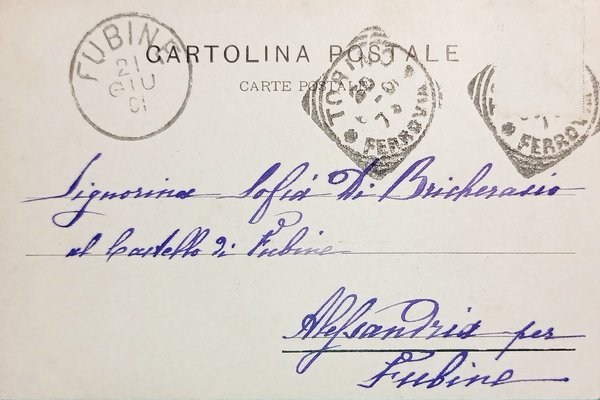 FUBINE
21
GIU
01
CARTOLINA POSTALE
CARTE POSTALE
TORINO
FERROVIA
FERROVIA
Signorina Sofia Di Bricherasio
al Castello di Fubine
Alessandria per
Fubine